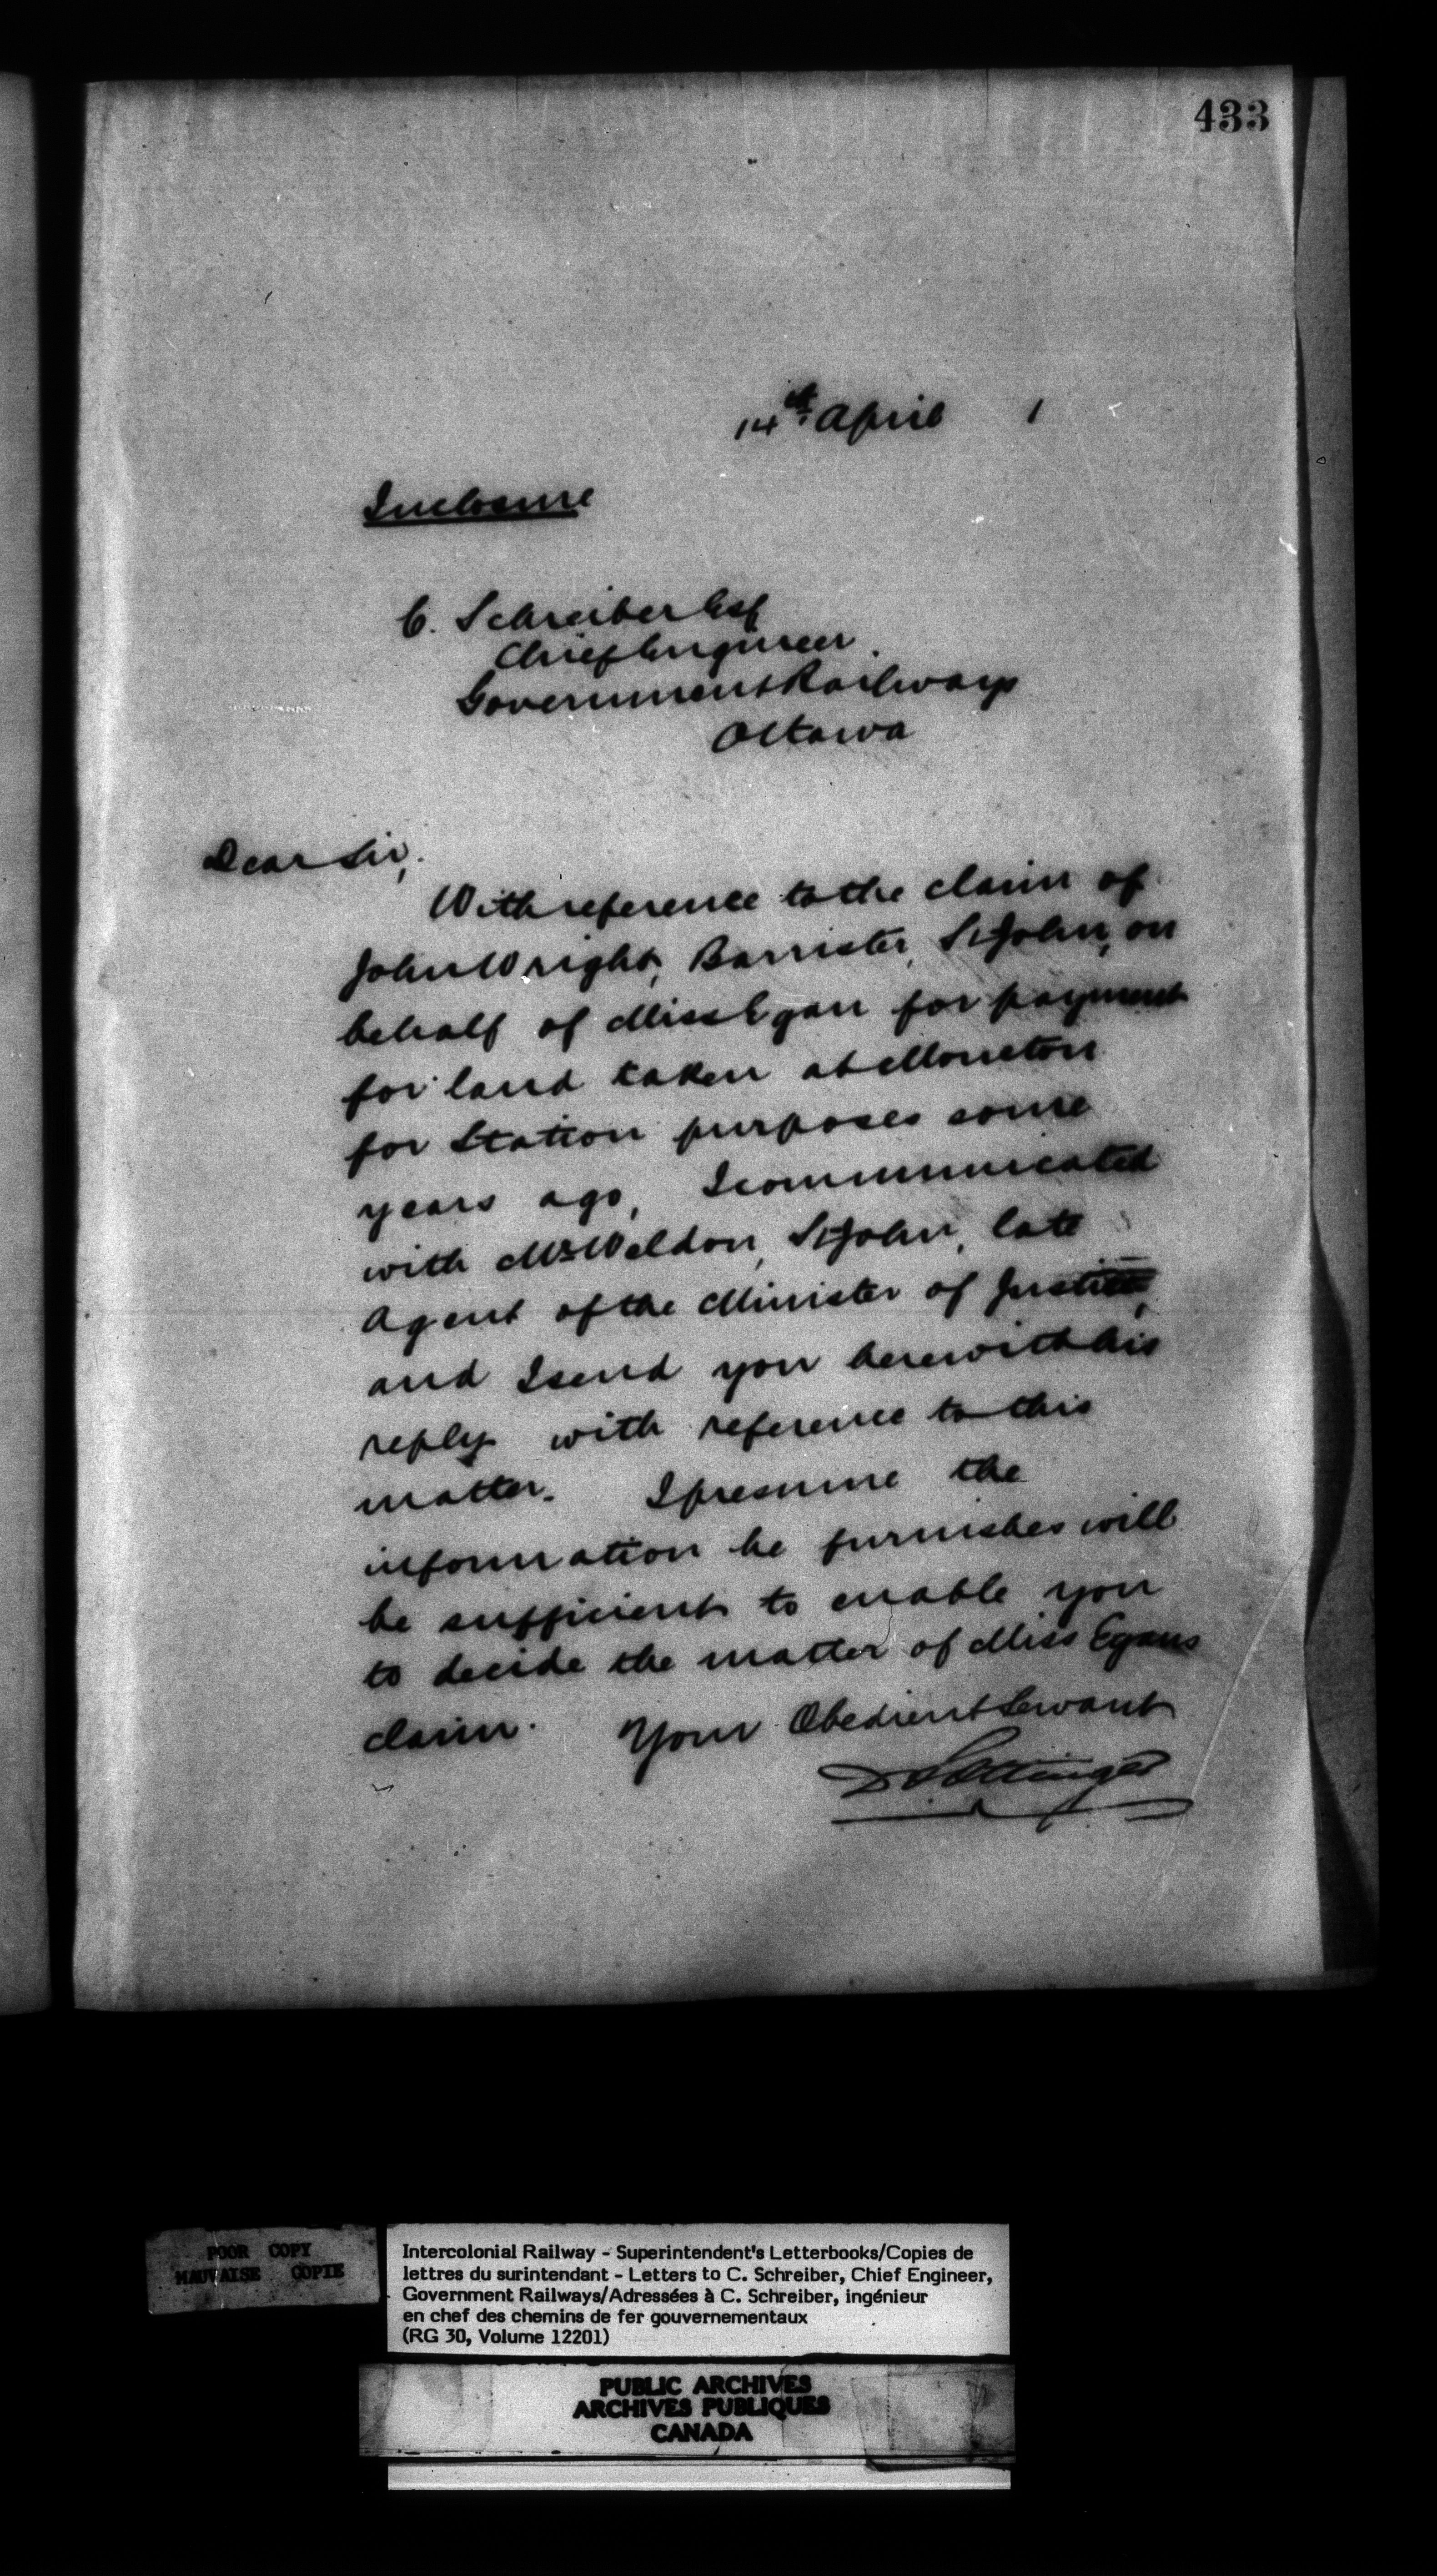 433
14th April 1
Inclosure
C. Schreiber Esq
Chief Engineer.
Government Railways
Ottawa
Dear Sir,
With reference to the claim of
John Wright, Barrister, St John, on
behalf of Miss Egan for payment
for land taken at Moncton
for Station purposes some
years ago, I communicated
with Mr Weldon, St John, late
Agent of the Minister of Justice,
and I send you herewith his
reply with reference to this
matter. I presume the
information he furnishes will
be sufficient to enable you
to decide the matter of Miss Egans
claim. Your Obedient Servant
D Pottinger
POOR COPY
MAUVAISE COPIE
Intercolonial Railway - Superintendent's Letterbooks/Copies de
lettres du surintendant - Letters to C. Schreiber, Chief Engineer,
Government Railways/Adressées à C. Schreiber, ingénieur
en chef des chemins de fer gouvernementaux
(RG 30, Volume 12201)
PUBLIC ARCHIVES
ARCHIVES PUBLIQUES
CANADA